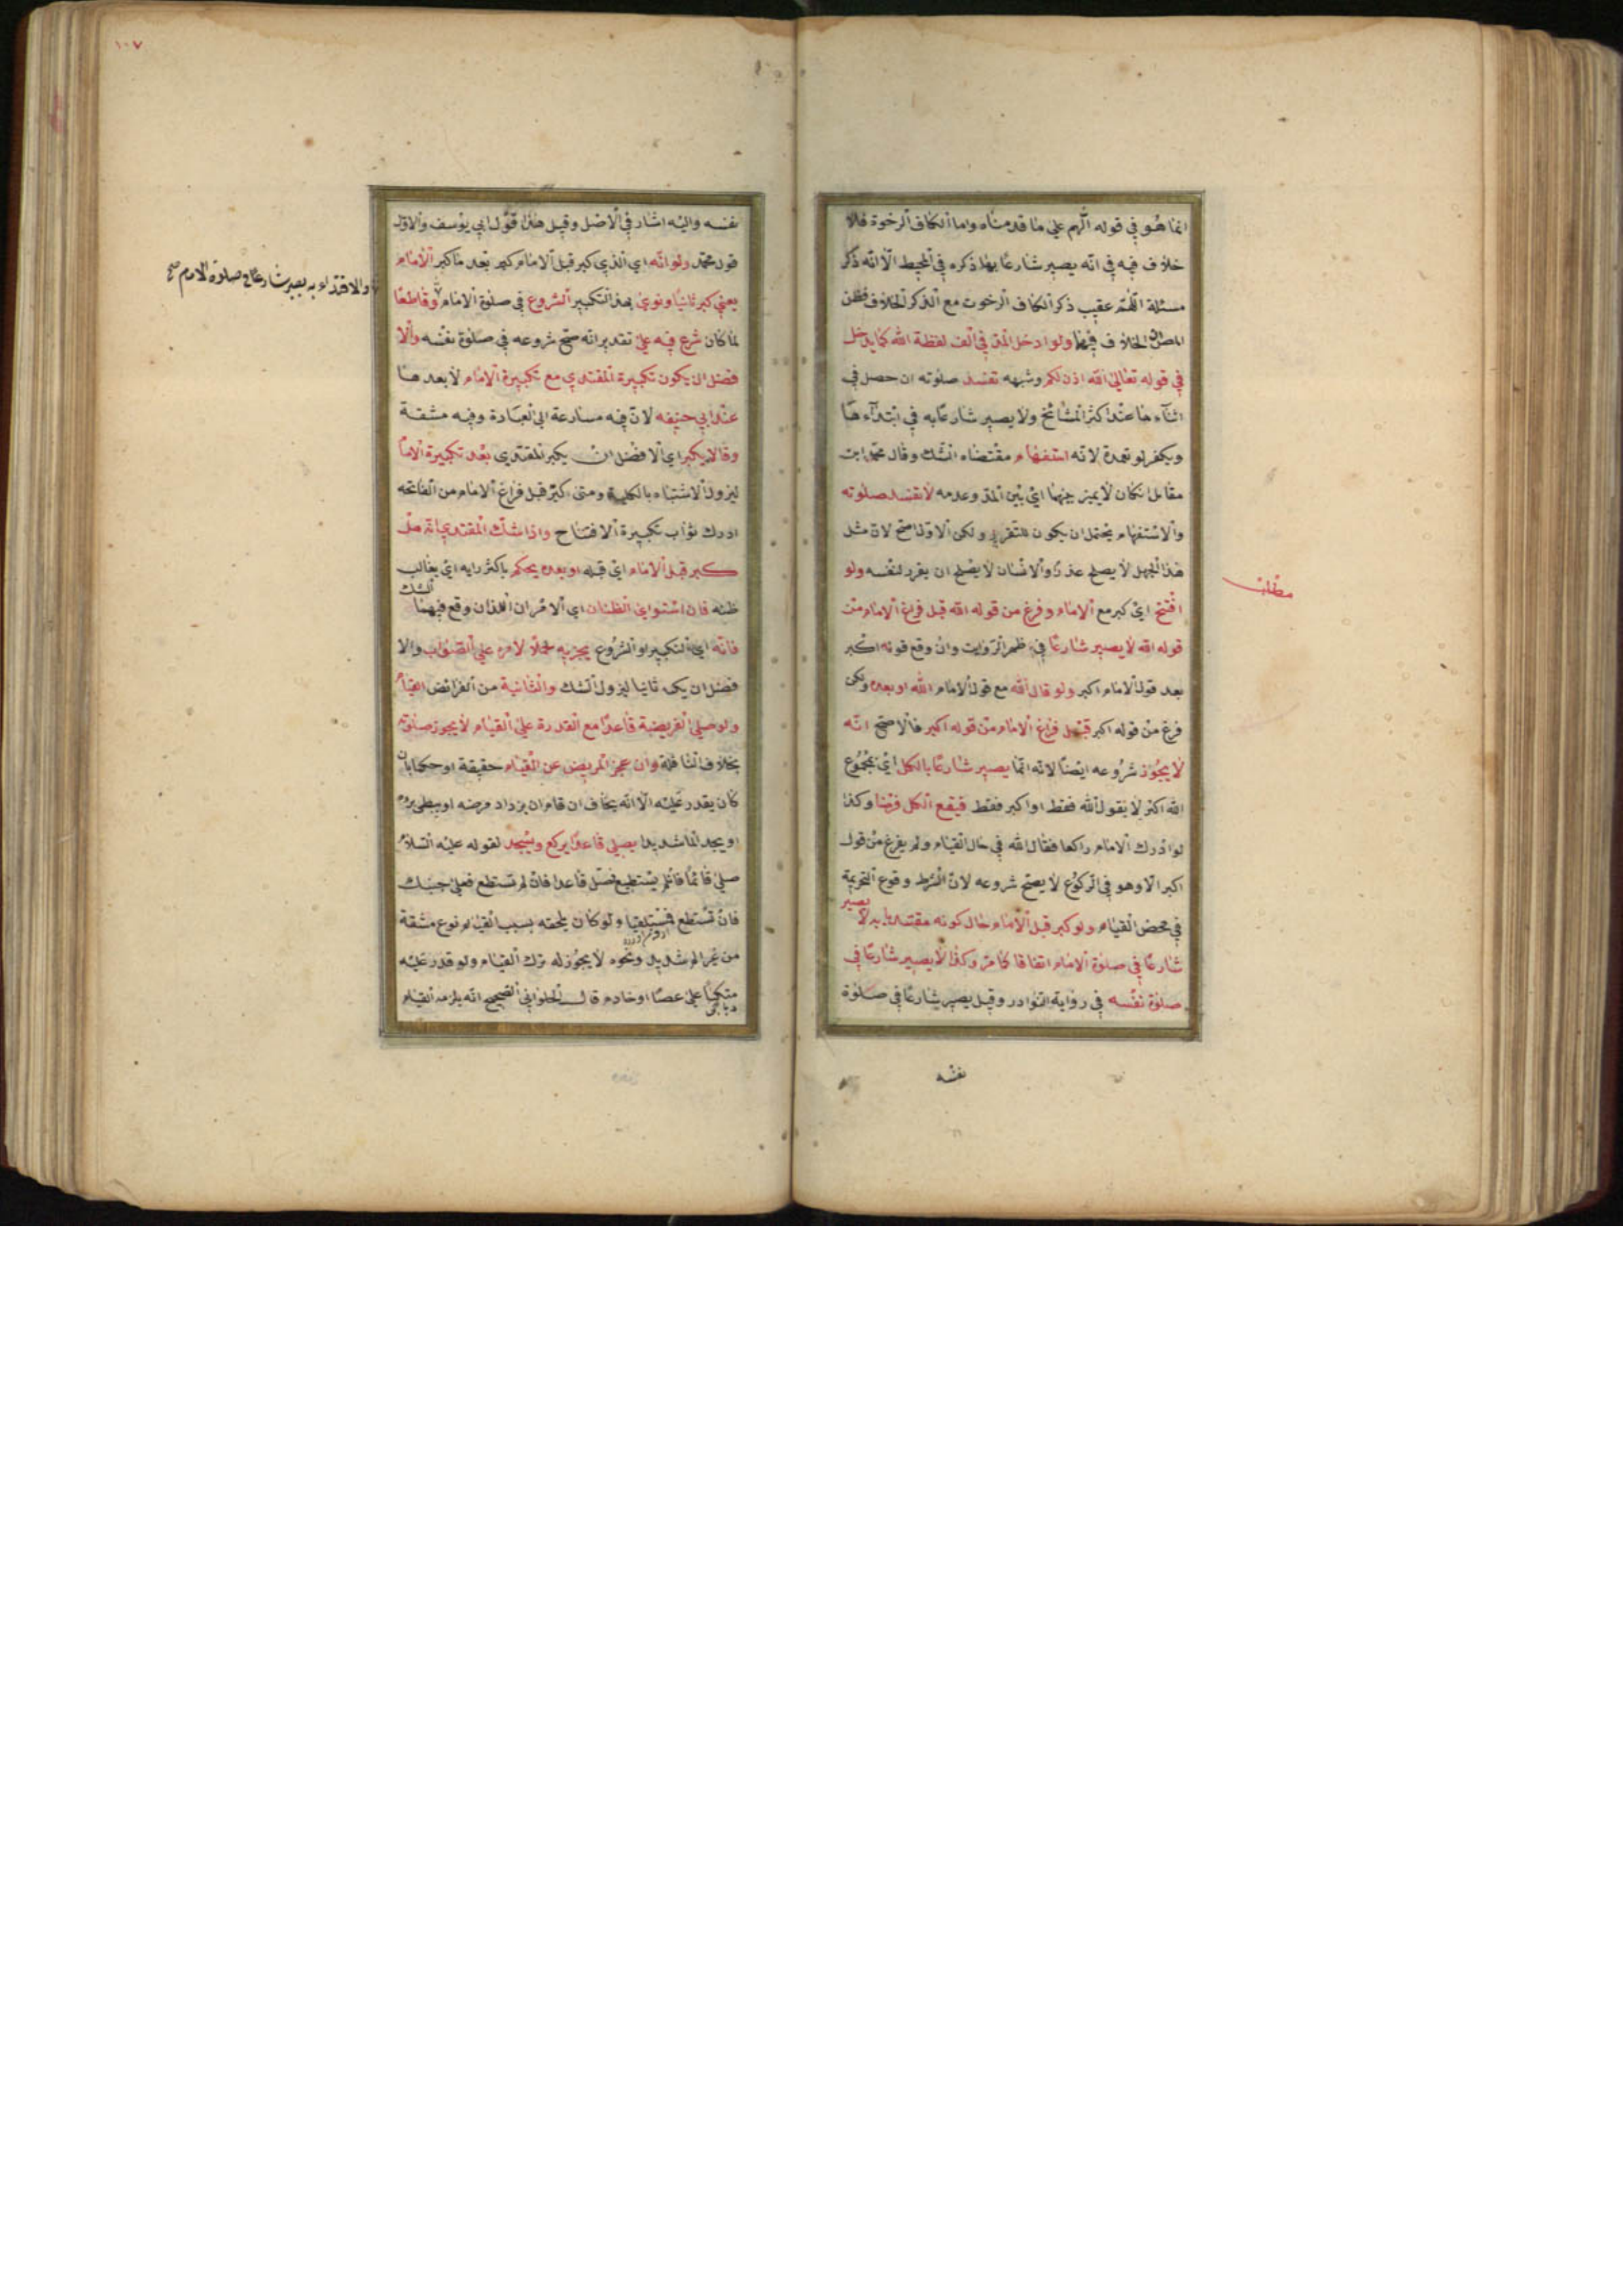 انما هو في قوله اللهم علي ما قدمناه واما الكاف الرخوة فلا
خلاف فيه في انه يصير شارعا بها ذكره في المحيط الا انه ذكر
مسئلة اللهم عقيب ذكر الكاف الرخوت مع الذكر الخلاف فظن
المص ان الخلاف فيهما ولو ادخل المد في الف لفظة الله كما يدخل
في قوله تعالي الله اذن لكم وشبهه تفسد صلوته ان حصل في
اثناء ها عند اكثر المشائخ ولا يصير شارعا به في ابتداء ها
ويكفر لو تعمدة لانه استفهام مقتضاه الشك وقال محمد ابن
مقاتل ان كان لا يميز بينهما اي بين المد وعدمه لا تفسد صلوته
والاستفهام يحتمل ان يكون للتقرير ولكن الاول اصح لان مثل
هذا الجهل لا يصلح عذرا والانسان لا يصلح ان يقرر لنفسه ولو
مطلب
افتتح اي كبر مع الامام وفرغ من قوله الله قبل فراغ الامام من
قوله الله لا يصير شارعا في ظهر الروايت وان وقع قوله اكبر
بعد قول الامام اكبر ولو قال الله مع قول الامام الله او بعده ولكن
فرغ من قوله اكبر قبل فراغ الامام من قوله اكبر فالاصح انه
لا يجوز شروعه ايضا لانه انما يصير شارعا بالكل اي بمجموع
الله اكبر لا بقول الله فقط او اكبر فقط فيقع الكل فرضا وكذا
لو ادرك الامام راكعا فقال الله في حال القيام ولم يفرغ من قول
اكبر الا وهو في الركوع لا يصح شروعه لان الشرط وقوع التحريمة
في محض القيام ولو كبر قبل الامام حال كونه مقتديا به لا يصير
شارعا في صلوة الامام اتفاقا كما مر وكذا لا يصير شارعا في
صلوة نفسه في رواية النوادر وقيل يصير شارعا في صلوة
نفسه
١٠٧
نفسه واليه اشار في الاصل وقيل هذا قول ابي يوسف والاول
قول محمد ولو انه اي الذي كبر قبل الامام كبر بعد ما كبر الامام
يعني كبر ثانيا ونوي بهذ التكبير الشروع في صلوة الامام وقاطعا
والاقتداء به يصير شارعا في صلوة الامام صح
لما كان شرع فيه علي تقدير انه صح شروعه في صلوة نفسه والا
فضل ان يكون تكبيرة المقتدي مع تكبيرة الامام لا بعد ها
عند ابي حنيفه لان فيه مسارعة الي العبادة وفيه مشقة
وقالا يكبر اي الافضل ان يكبر المقتدي بعد تكبيرة الاما
ليزول الاشتباه بالكلية ومتي كبر قبل فراغ الامام من الفاتحه
ادرك ثواب تكبيرة الافتتاح واذا شك المقتدي انه هل
كبر قبل الامام اي قبله او بعده يحكم باكثر رايه اي بغالب
ظنه فان استواي الظنان اي الامران اللذان وقع فيهما الشك
فانه اي التكبير او الشروع يجزيه حملا لامره علي الصواب والا
فضل ان يكبر ثانيا ليزول الشك والثانية من الفرائض القيام
ولو صلي الفريضة قاعدا مع القدرة علي القيام لا يجوز صلوته
بخلاف النافلة وان عجز المريض عن القيام حقيقة او حكما بان
كان يقدر عليه الا انه يخاف ان قام ان يزداد مرضه او يبطي برؤه
او يجد الما شديدا يصلي قاعدا يركع ويسجد لقوله عليه السلام
صلي قائما فان لم يستطيع فصل قاعدا فان لم تستطع فعلي جنبك
فان تستطع فمستلقيا ولو كان يلحقه بسبب القيام نوع مشقة
من غير الم شديد ونحوه لا يجوز له ترك القيام ولو قدر عليه
متكيا علي عصا او خادم قال الحلواني الصحيح انه يلزمه القيام